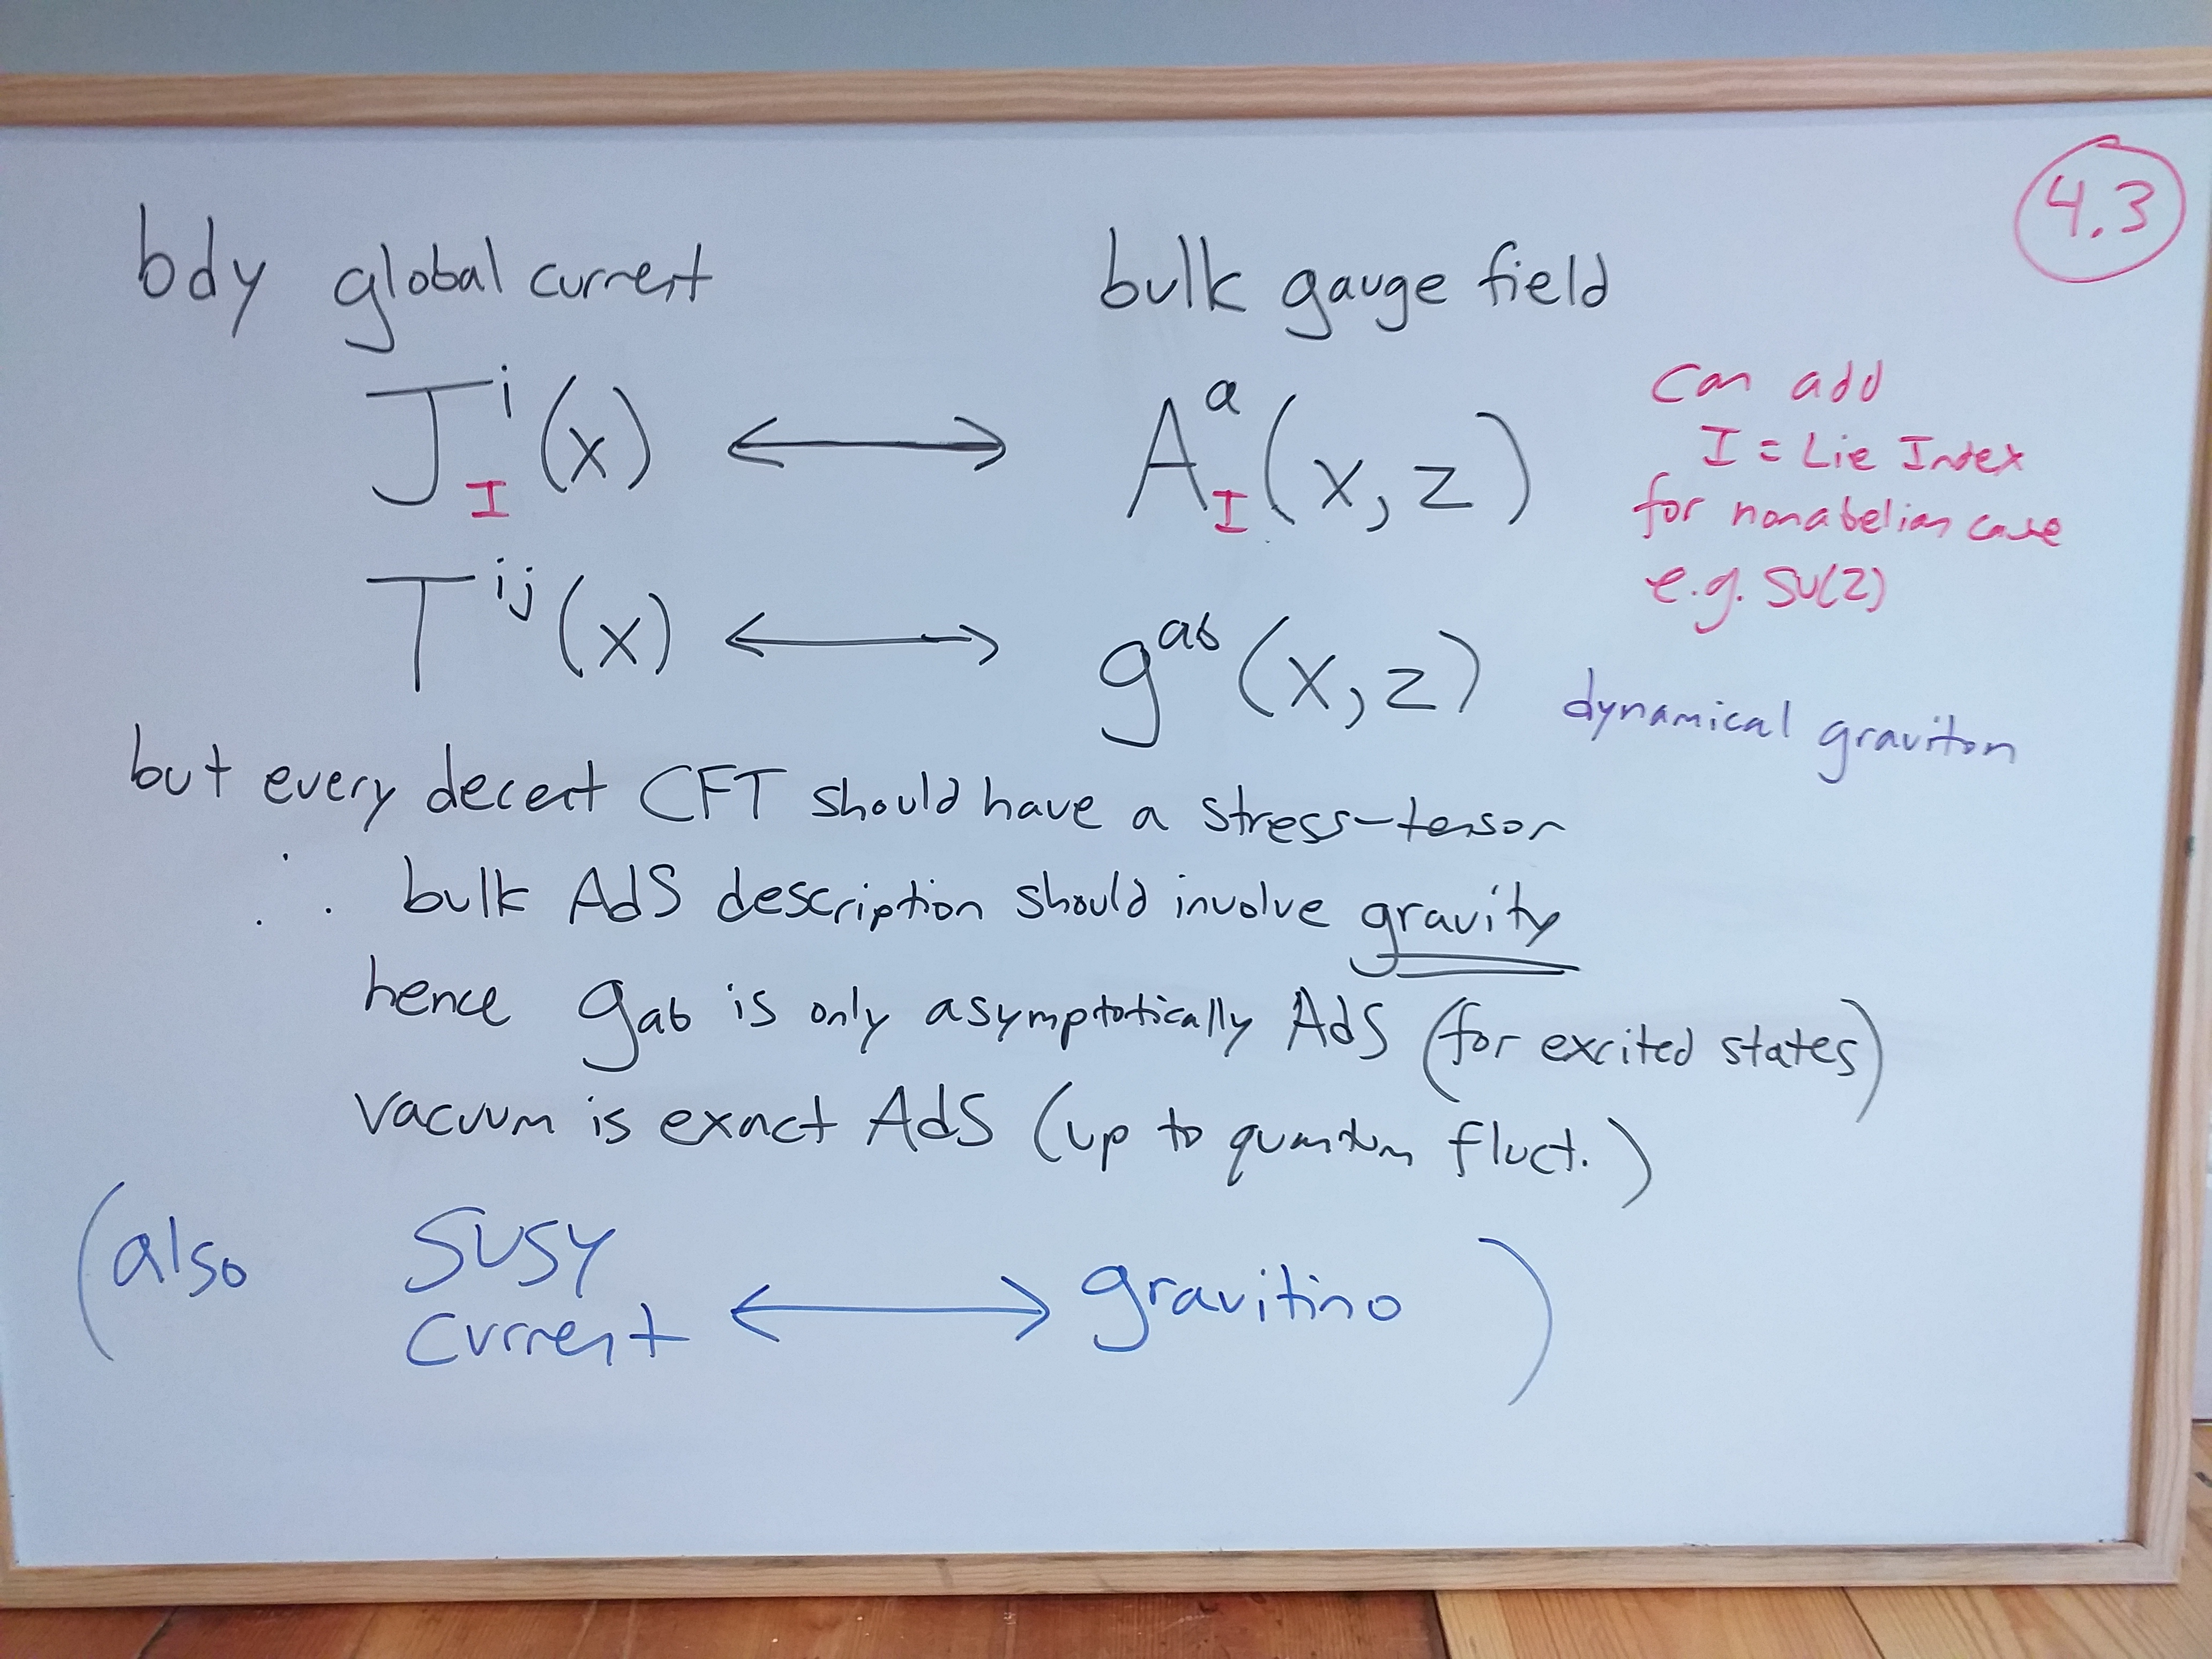 4.3
bdy global current bulk gauge field
J^i_I(x) ⟷ A^a_I(x, z)
can add
I = Lie Index
for nonabelian case
e.g. SU(2)
T^ij(x) ⟷ g^ab(x, z) dynamical graviton
but every decent CFT should have a stress-tensor
∴ bulk AdS description should involve gravity
hence g_ab is only asymptotically AdS (for excited states)
vacuum is exact AdS (up to quantum fluct.)
(also SUSY
current ⟷ gravitino)